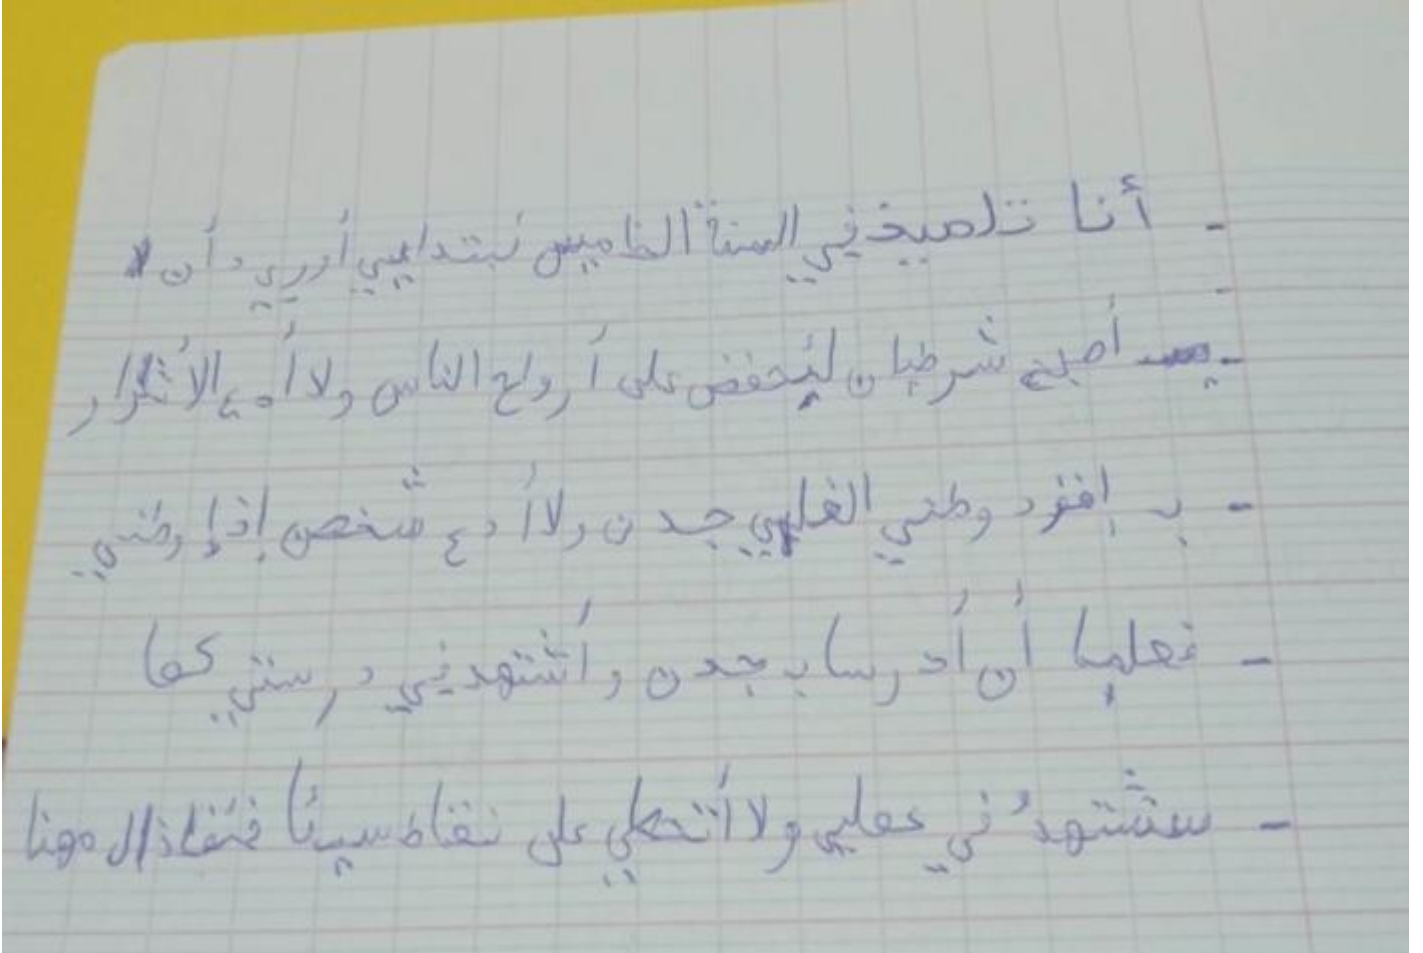 - أنا تلميذ في السنة الخاميس بتدايي أريد أن
- أصبح شرطيان ليحفض على أرواح الناس ولا أدع الأشرار
- بـ إفقد وطني الغليي جدن ولا أدع شخص إذا وطني
- فعليا أن أدرسا بـ جدن و أشتهد في درستي كما
- ستشتهد في عملي ولا أتحطي على نقاط سيئا